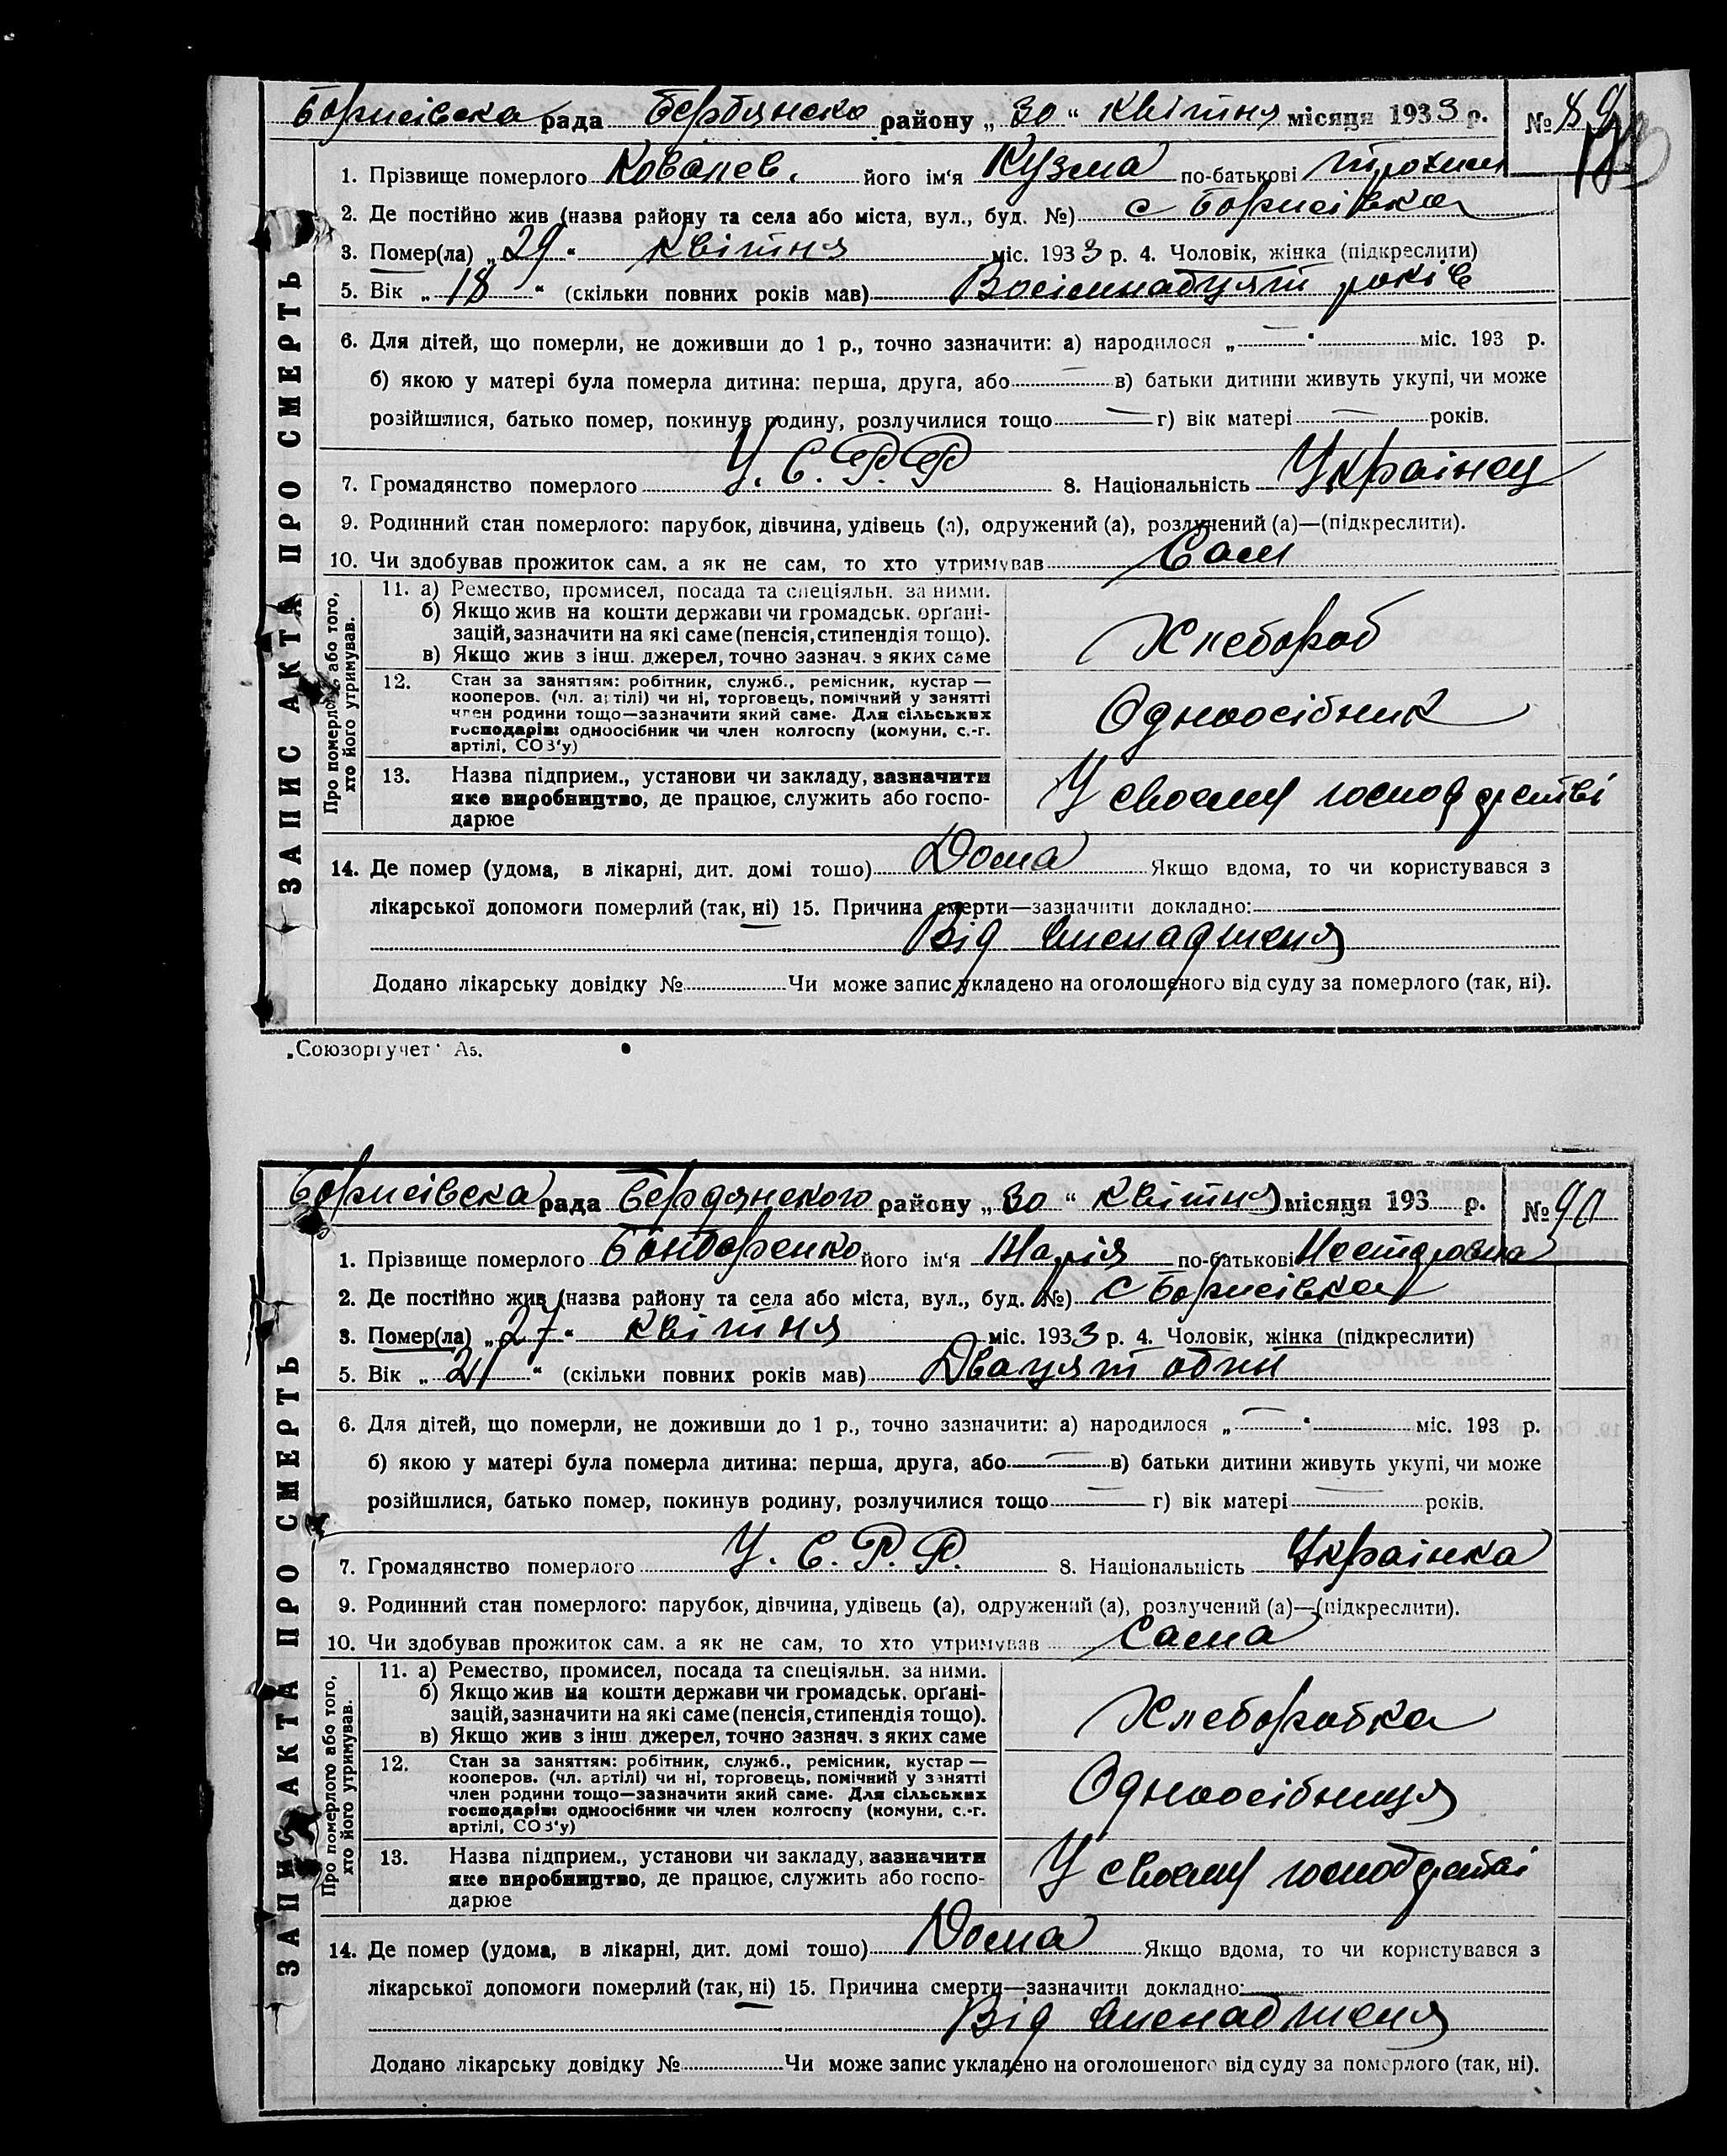 Борисівска рада Бердянско району „30“ Квітня місяця 1933 р. № 89
1. Прізвище померлого Ковалев. його ім‘я Кузма по-батькові Трохим
2. Де постійно жив (назва району та села або міста, вул., буд. №) с Борисівка
3. Помер(ла) „29“ Квітня міс. 1933 р. 4. Чоловік, жінка (підкреслити)
5. Вік „18“ (скільки повних років мав) Восімнадцят років
6. Для дітей, що померли, не доживши до 1 р., точно зазначити: а) народилося „—“ міс. 193 р.
б) якою у матері була померла дитина: перша, друга, або — в) батьки дитини живуть укупі, чи може
розійшлися, батько помер, покинув родину, розлучилися тощо — г) вік матері — років.
7. Громадянство померлого У. С. Р. Р 8. Національність Українец
9. Родинний стан померлого: парубок, дівчина, удівець (а), одружений (а), розлучений (а)—(підкреслити).
10. Чи здобував прожиток сам. а як не сам, то хто утримував Сам
ЗАПИС АКТА ПРО СМЕРТЬ
Про померлого або того,
хто його утримував.
11. а) Ремество, промисел, посада та спеціяльн. за ними.
б) Якщо жив на кошти держави чи громадськ. орґані-
зацій, зазначити на які саме (пенсія, стипендія тощо).
в) Якщо жив з інш. джерел, точно зазнач. з яких саме
Хлебороб
12. Стан за заняттям: робітник, служб., ремісник, кустар —
кооперов. (чл. артілі) чи ні, торговець, помічний у занятті
член родини тощо—зазначити який саме. Для сільських
господарів: одноосібник чи член колгоспу (комуни, с.-г.
артілі, СОЗ‘у)
Одноосібник
13. Назва підприєм., установи чи закладу, зазначити
яке виробництво, де працює, служить або госпо-
дарює
У своему господрстві
14. Де помер (удома, в лікарні, дит. домі тошо) Дома Якщо вдома, то чи користувався з
лікарської допомоги померлий (так, ні) 15. Причина смерти—зазначити докладно:
Від
Додано лікарську довідку № Чи може запис укладено на оголошеного від суду за померлого (так, ні).
„Союзоргучет“ А5.
Борисівска рада Бердянского району „30“ Квітня місяця 193 р. № 90
1. Прізвище померлого Бондаренко його ім‘я Марія по-батькові Нестеровна
2. Де постійно жив (назва району та села або міста, вул., буд. №) с Борисівка
3. Помер(ла) „27“ Квітня міс. 1933 р. 4. Чоловік, жінка (підкреслити)
5. Вік „21“ (скільки повних років мав) Двацят один
6. Для дітей, що померли, не доживши до 1 р., точно зазначити: а) народилося „—“ міс. 193 р.
б) якою у матері була померла дитина: перша, друга, або — в) батьки дитини живуть укупі, чи може
розійшлися, батько помер, покинув родину, розлучилися тощо — г) вік матері — років.
7. Громадянство померлого У. С. Р. Р. 8. Національність Українка
9. Родинний стан померлого: парубок, дівчина, удівець (а), одружений (а), розлучений (а)—(підкреслити).
10. Чи здобував прожиток сам. а як не сам, то хто утримував Сама
ЗАПИС АКТА ПРО СМЕРТЬ
Про померлого або того,
хто його утримував.
11. а) Ремество, промисел, посада та спеціяльн. за ними.
б) Якщо жив на кошти держави чи громадськ. орґані-
зацій, зазначити на які саме (пенсія, стипендія тощо).
в) Якщо жив з інш. джерел, точно зазнач. з яких саме
Хлеборобка
12. Стан за заняттям: робітник, служб., ремісник, кустар —
кооперов. (чл. артілі) чи ні, торговець, помічний у занятті
член родини тощо—зазначити який саме. Для сільських
господарів: одноосібник чи член колгоспу (комуни, с.-г.
артілі, СОЗ‘у)
Одноосібниця
13. Назва підприєм., установи чи закладу, зазначити
яке виробництво, де працює, служить або госпо-
дарює
У своему господрстві
14. Де помер (удома, в лікарні, дит. домі тошо) Дома Якщо вдома, то чи користувався з
лікарської допомоги померлий (так, ні) 15. Причина смерти—зазначити докладно:
Від
Додано лікарську довідку № Чи може запис укладено на оголошеного від суду за померлого (так, ні).